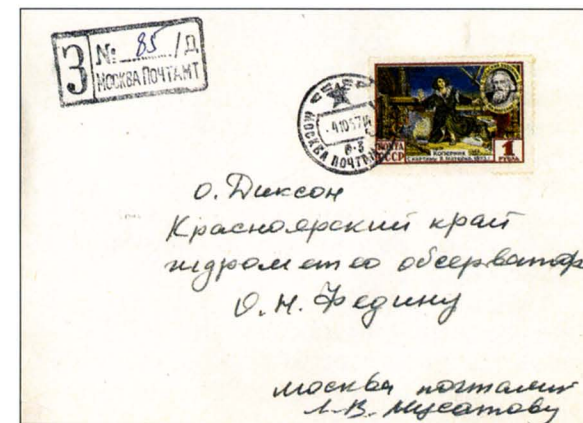 З № 85 /Д
МОСКВА ПОЧТАМТ
МОСКВА ПОЧТАМТ
-4.10.57
ПОЧТА СССР
КОПЕРНИК
1 РУБЛЬ
о. Диксон
Красноярский край
гидрометео обсерватор
О. Н. Федину
Москва почтамт
Л. В. Мусатову